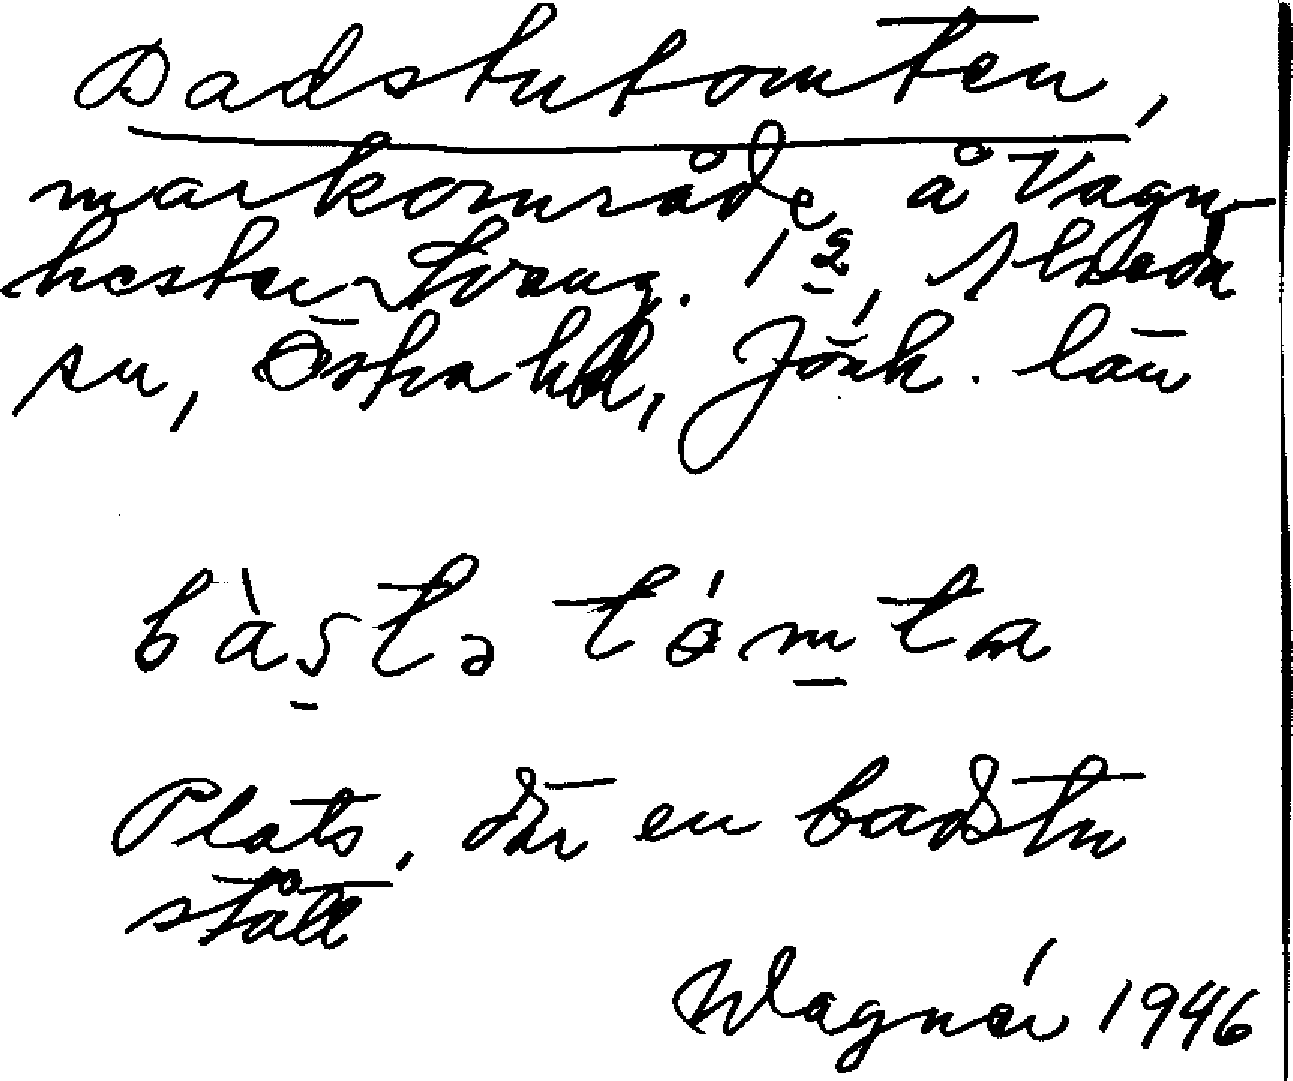 Badstutomten,
markområde å Vagn-
hester Svang. 1 2, Alseda
sn, Östra hd, Jönk. län
bàsta tómta
Plats, där en badstu
stått
Wagnér 1946